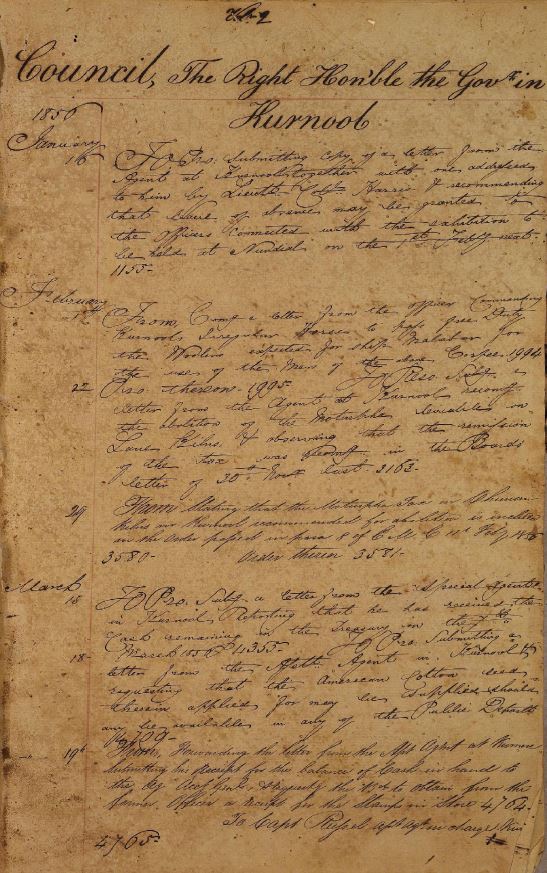 Council, The Right Hon'ble the Gov.r in
Kurnool
1850
January
16 To Pro. Submitting copy of a letter from the
Agent at Kurnool together with one addressed
to him by Lieut. Col. Harris & recommending
that leave of absence may be granted to
the officers connected with the
be held at Nundial on the 1st Feby next
1155-
February
From, Comg a letter from the officer Commanding
Kurnool Irregular Horse to pass free Duty
the Woolens expected for ship Malabar for
the use of the Men of the above Corps 1994
Pro. thereon 1995- To Pro. Subg a
22 letter from the Agent at Kurnool recomg
the abolition of the Moturpha leviable on
Lime Kilns & observing that the remission
of the Tax was recomd in the Boards
letter of 30th Novr last 3163-
29 From Stating that the Moturpha Tax on Chunam
Kilns in Kurnool recommended for abolition is
in the order passed in para 8 of E. M. C Feby
3580- Order thereon 3581-
March
15 To Pro. Subg a letter from the Special Agent
in Kurnool Reporting that he has received the
Cash remaining in the Treasury on the
March 4355- To Pro. Submitting a
18- letter from the Agent in Kurnool
requesting that the American Cotton seed
therein applied for may be supplied should
any be available in any of the Public Depots
4709-
19th From, Forwarding the letter from the Asst Agent at Kurnool
Submitting his Receipt for the balance of Cash in hand to
the & requests the to obtain from the
former Officer a receipt for the Stamps in Store 4764-
To Capt Russel agt in charge
4765-